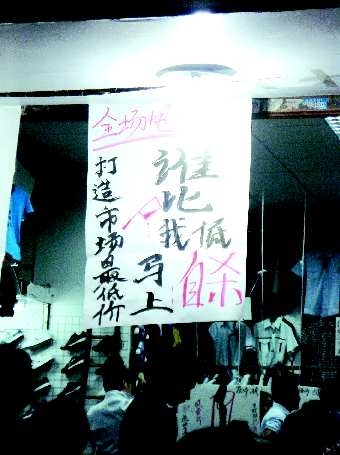 全场甩
打造市场最低价
谁比我低
马上
自杀